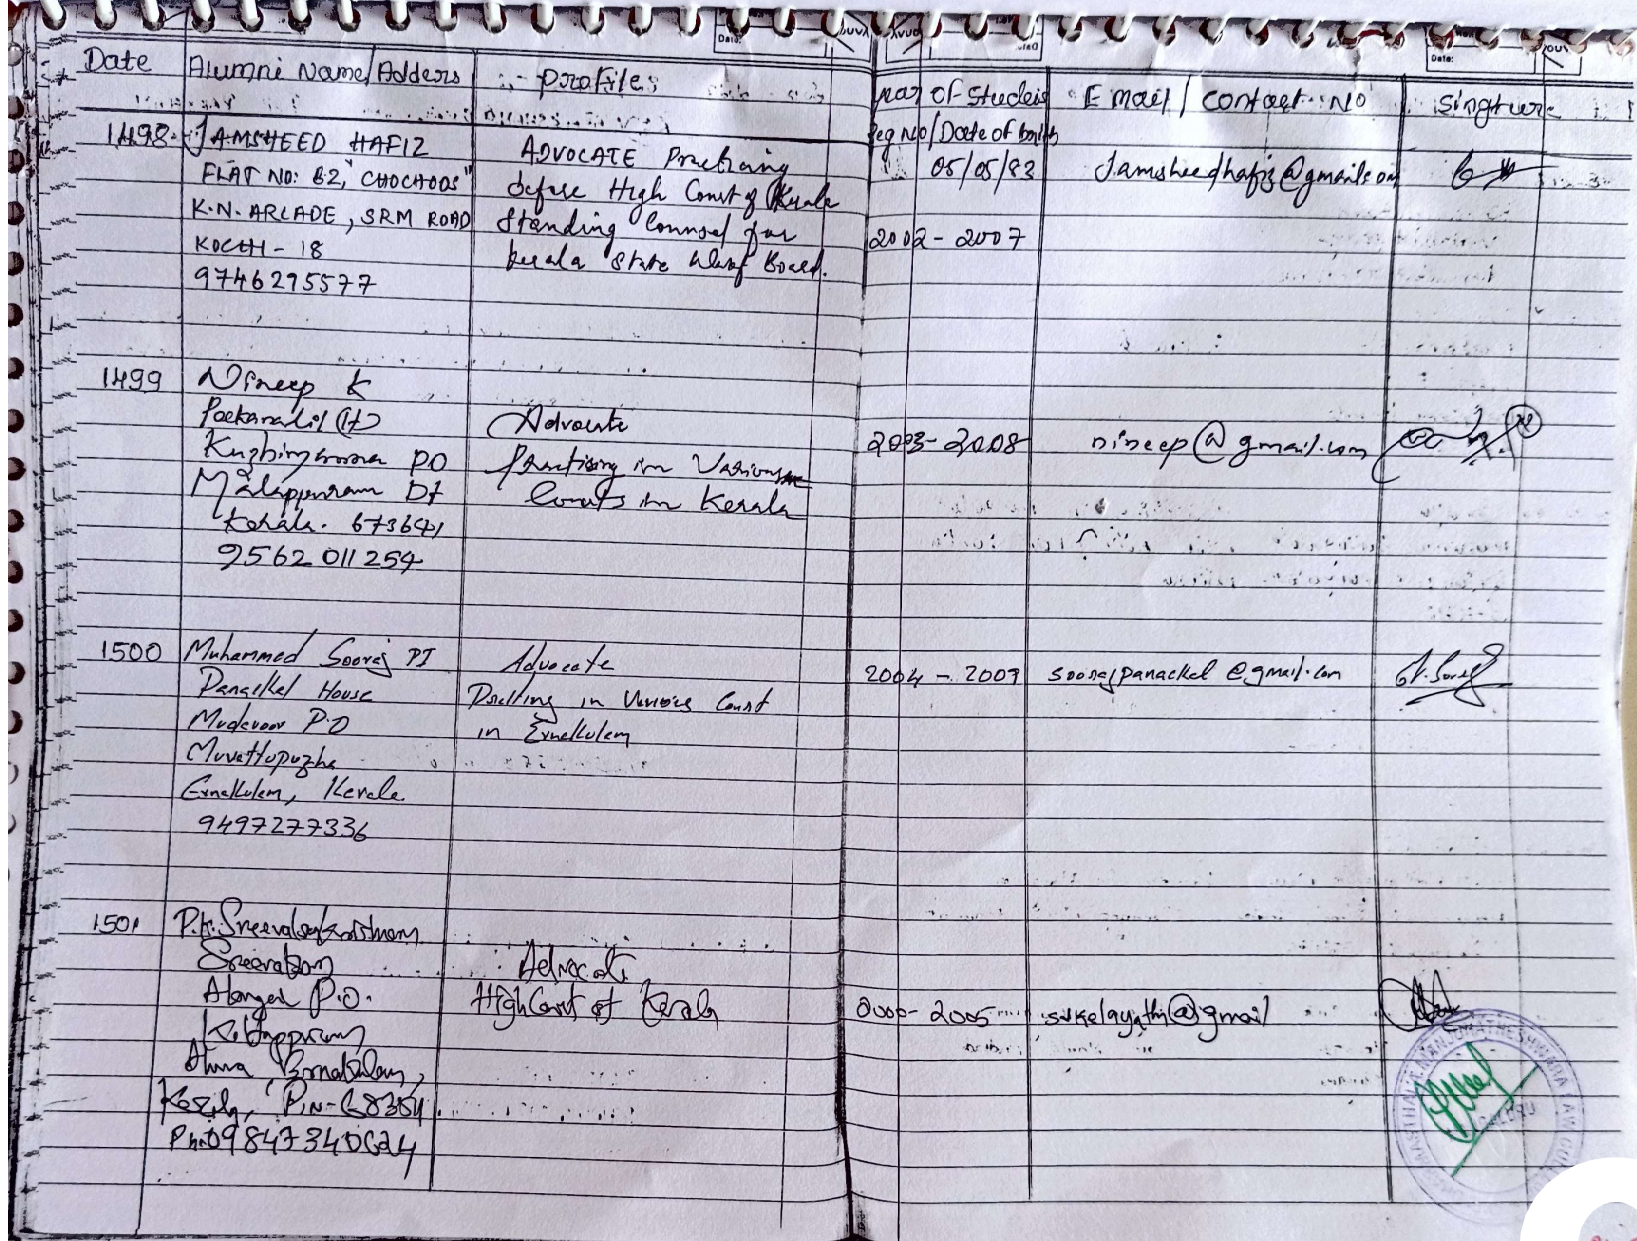 Date
Alumni Name/Adders
:- profile:
year of studeis
Reg No/Date of borith
E mail / contact. No
singture
1498.
JAMSHEED HAFIZ
FLAT NO: B2, "CHOCHOOS"
K.N. ARCADE, SRM ROAD
KOCHI - 18
9746295577
ADVOCATE Practicing
before High Court of Kerala
Standing Counsel for
Kerala State Waqf Board.
05/05/83
2002 - 2007
Jamsheedhafiz@gmail.com
1499
Nineep K
(H)
PO
Malappuram Dt
Kerala. 673641
9562 011 254
Advocate
Practising in Various
Courts in Kerala
2003-2008
nineep@gmail.com
1500
Muhammed Sooraj PI
Panackal House
Mudavoor P.O
Muvattupuzha
Ernakulam, Kerala
9497277336
Advocate
in Various Court
in Ernakulam
2004 - 2009
soorajpanackal@gmail.com
1501
P.K. Sreevalsakrishnan
Sreevalsam
P.O.
Kottappuram
Aluva Ernakulam,
Kerala, PIN-
Advocate
High Court of Kerala
2000- 2005
@gmail